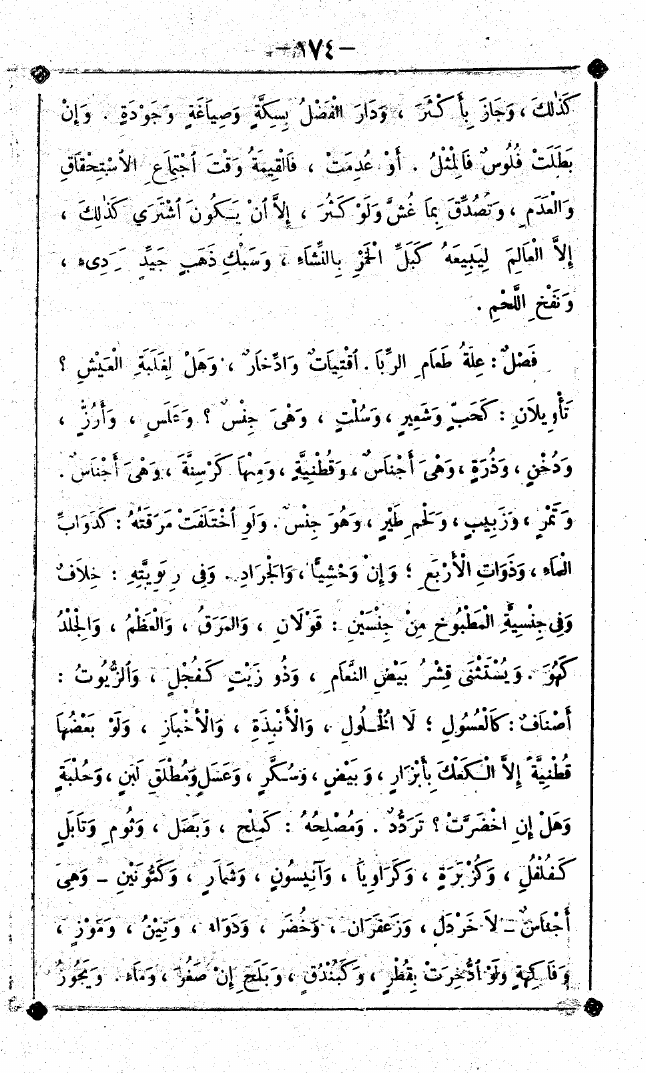 -١٧٤-
كَذٰلكَ، وَجَازَ بِأَ كْثَرَ ، وَدَارَ الْفَضْلُ بِسِكَّةٍ وَصِيَاغَةٍ وَجَوْدَةٍ . وَإِنْ
بَطَلَتْ فُلُوسٌ فَالْمِثْلُ . أَوْ عُدِمَتْ ، فَالْقِيمَةُ وَقْتَ اُجْتِمَاعِ الْاسْتِحْقَاقِ
وَالْعَدَمِ ، وَتُصُدِّقَ بِمَا غُشَّ وَلَوْ كَثُرَ ، إِلاَّ أَنْ يَكُونَ اُشْتَرَى كَذَلِكَ ،
إِلاَّ الْعَالِمَ لِيَبِيعَهُ كَبَلِّ الْخُمْرِ بِالنِّشَاءِ ، وَسَبْكِ ذَهَبٍ جَيِّدٍ وَرَدِىءٍ ،
وَنَفْخِ اللَّحْمِ .
فَصْلٌ : عِلَّةُ طَعَامِ الرِّبَا . اُقْتِيَاتٌ وَادِّخَارٌ ، وَهَلْ لِغَلَبَةِ الْعَيْشِ ؟
تَأْوِيلاَنِ : كَحَبٍّ وَشَعِيرٍ ، وَسُلْتٍ ، وَهْىَ جِنْسٌ ؟ وَعَلَسٍ ، وَأَرُزٍّ ،
وَدُخْنٍ ، وَذُرَةٍ ، وَهْىَ أَجْنَاسٌ ، وَقُطْنِيَّةٍ ، وَمِنْهَا كِرْسِنَّةٌ ، وَهْىَ أَجْنَاسٌ .
وَتَمْرٍ ، وَزَبِيبٍ ، وَلَحْمِ طَيْرٍ ، وَهُوَ جِنْسٌ . وَلَوِ اُخْتَلَفَتْ مَرَقَتُهُ : كَدَوَابِّ
الْمَاءِ ، وَذَوَاتِ الْأَرْبَعِ ؛ وَإِنْ وَحْشِيًّا ، وَالْجَرَادِ . وَفِى رِبَوِيَّتِهِ : خِلاَفٌ
وَفِى جِنْسِيَّةِ الْمَطْبُوخِ مِنْ جِنْسَيْنِ : قَوْلاَنِ ، وَالْمَرَقُ ، وَالْعَظْمُ ، وَالْجِلْدُ
كَهُوَ . وَيُسْتَثْنَى قِشْرُ بَيْضِ النَّعَامِ ، وَذُو زَيْتٍ كَفُجْلٍ ، وَالزُّيُوتُ :
أَصْنَافٌ : كَالْعُسُولِ ؛ لَا الْخُلُولِ ، وَالْأَنْبِذَةِ ، وَالْأَخْبَازِ ، وَلَوْ بَعْضُهَا
قُطْنِيَّةً إِلاَّ الْكَعْكَ بِأَبْزَارٍ ، وَبَيْضٍ ، وَسُكَّرٍ ، وَعَسَلٍ وَمُطْلَقِ لَبَنٍ ، وَحُلْبَةٍ
وَهَلْ إِنِ اخْضَرَّتْ ؟ تَرَدُّدٌ . وَمُصْلِحُهُ : كَمِلْحٍ ، وَبَصَلٍ ، وَثُومٍ وَتَابَلٍ
كَفُلْفُلٍ ، وَكُزْبَرَةٍ ، وَكَرَاوِيَا ، وَآنِيسُونٍ ، وَشَمَارٍ ، وَكَمُّونَيْنِ - وَهِىَ
أَجْنَاسٌ - لاَ خَرْدَلٍ ، وَزَعْفَرَانٍ ، وَخُضَرٍ ، وَدَوَاءٍ ، وَتِينٍ ، وَمَوْزٍ ،
وَفَاكِهَةٍ وَلَوْ اُدُّخِرَتْ بِقُطْرٍ ، وَكَبُنْدُقٍ ، وَبَلَحٍ إِنْ صَغُرَ ، وَمَاءٍ . وَيَجُوزُ